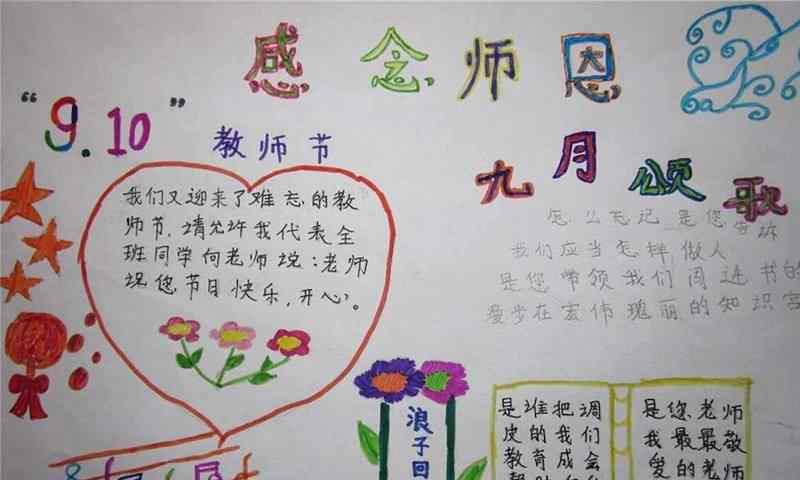 感念师恩
“9.10”
教师节
九月颂歌
我们又迎来了难忘的教
师节,请允许我代表全
班同学向老师说:老师
祝您节日快乐,开心。
怎么忘记是您告诉
我们应当怎样做人
是您带领我们闯进书的
漫步在宏伟瑰丽的知识宫
浪子回
是谁把调
皮的我们
教育成会
是您老师
我最最敬
爱的老师